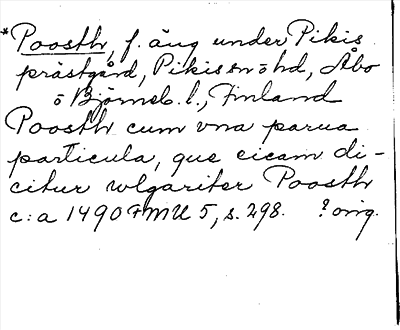 *Poosth, f. äng under Pikis
prästgård, Pikis sn o hd, Åbo
o Björneb. l., Finland
Poosth cum vna parua
particula, que eciam di-
citur wlgariter Poosth
c:a 1490 FMU 5, s. 298. ? orig.